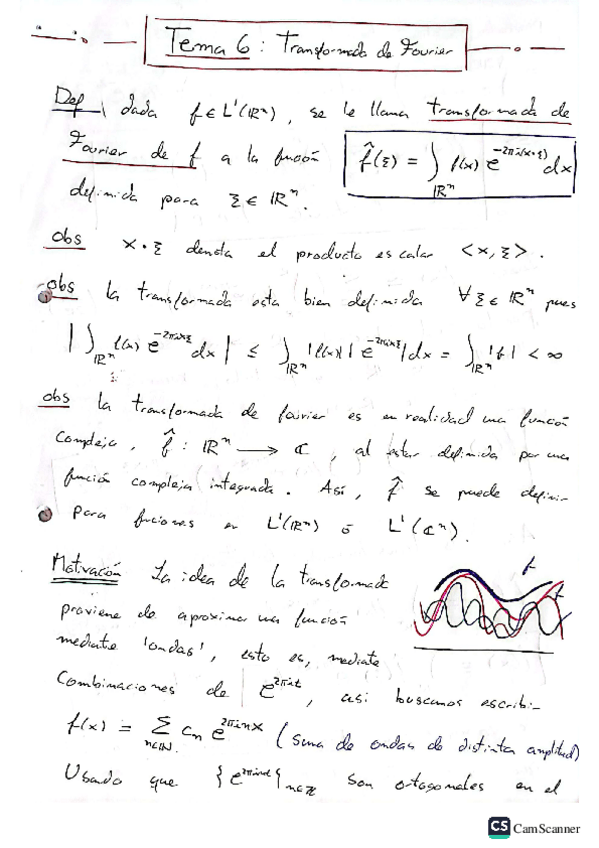 Tema 6: Transformada de Fourier
Def | dada f ∈ L¹(ℝⁿ), se le llama transformada de
Fourier de f a la función f̂(ξ) = ∫_ℝⁿ f(x) e^{-2πi(x·ξ)} dx
definida para ξ ∈ ℝⁿ.
obs x·ξ denota el producto escalar <x,ξ>.
obs la transformada esta bien definida ∀ξ∈ℝⁿ pues
|∫_ℝⁿ f(x) e^{-2πixξ} dx| ≤ ∫_ℝⁿ |f(x)| |e^{-2πixξ}| dx = ∫_ℝⁿ |f| < ∞
obs la transformada de fourier es en realidad una función
compleja, f̂: ℝⁿ → ℂ, al estar definida por una
función compleja integrada. Así, f̂ se puede definir
para funciones en L¹(ℝⁿ) ó L¹(ℂⁿ).
Motivación La idea de la transformada
proviene de aproximar una función
mediante 'ondas', esto es, mediante
combinaciones de e^{2πixt}, así buscamos escribir
f(x) = Σ_{n∈ℕ} cₙ e^{2πinx} (suma de ondas de distinta amplitud)
Usando que {e^{2πinx}}_{n∈ℤ} son ortogonales en el
CS CamScanner